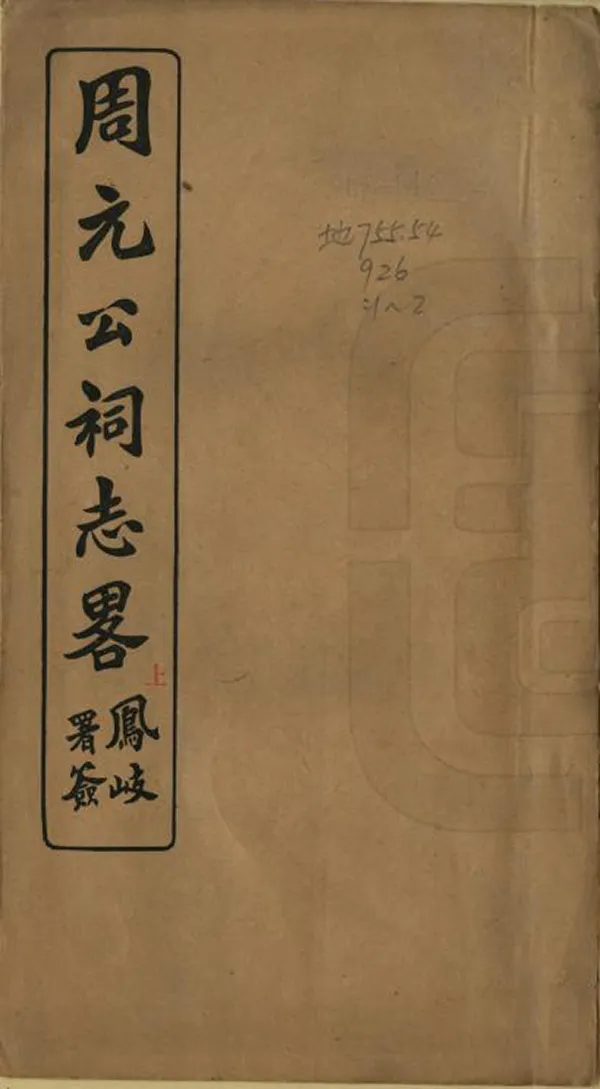 周元公祠志畧
上
鳳岐
署簽
地755.54
926
:1~2